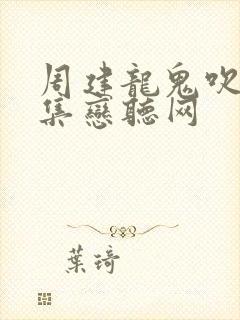 周建龍鬼吹
集戀聽网
葉琦